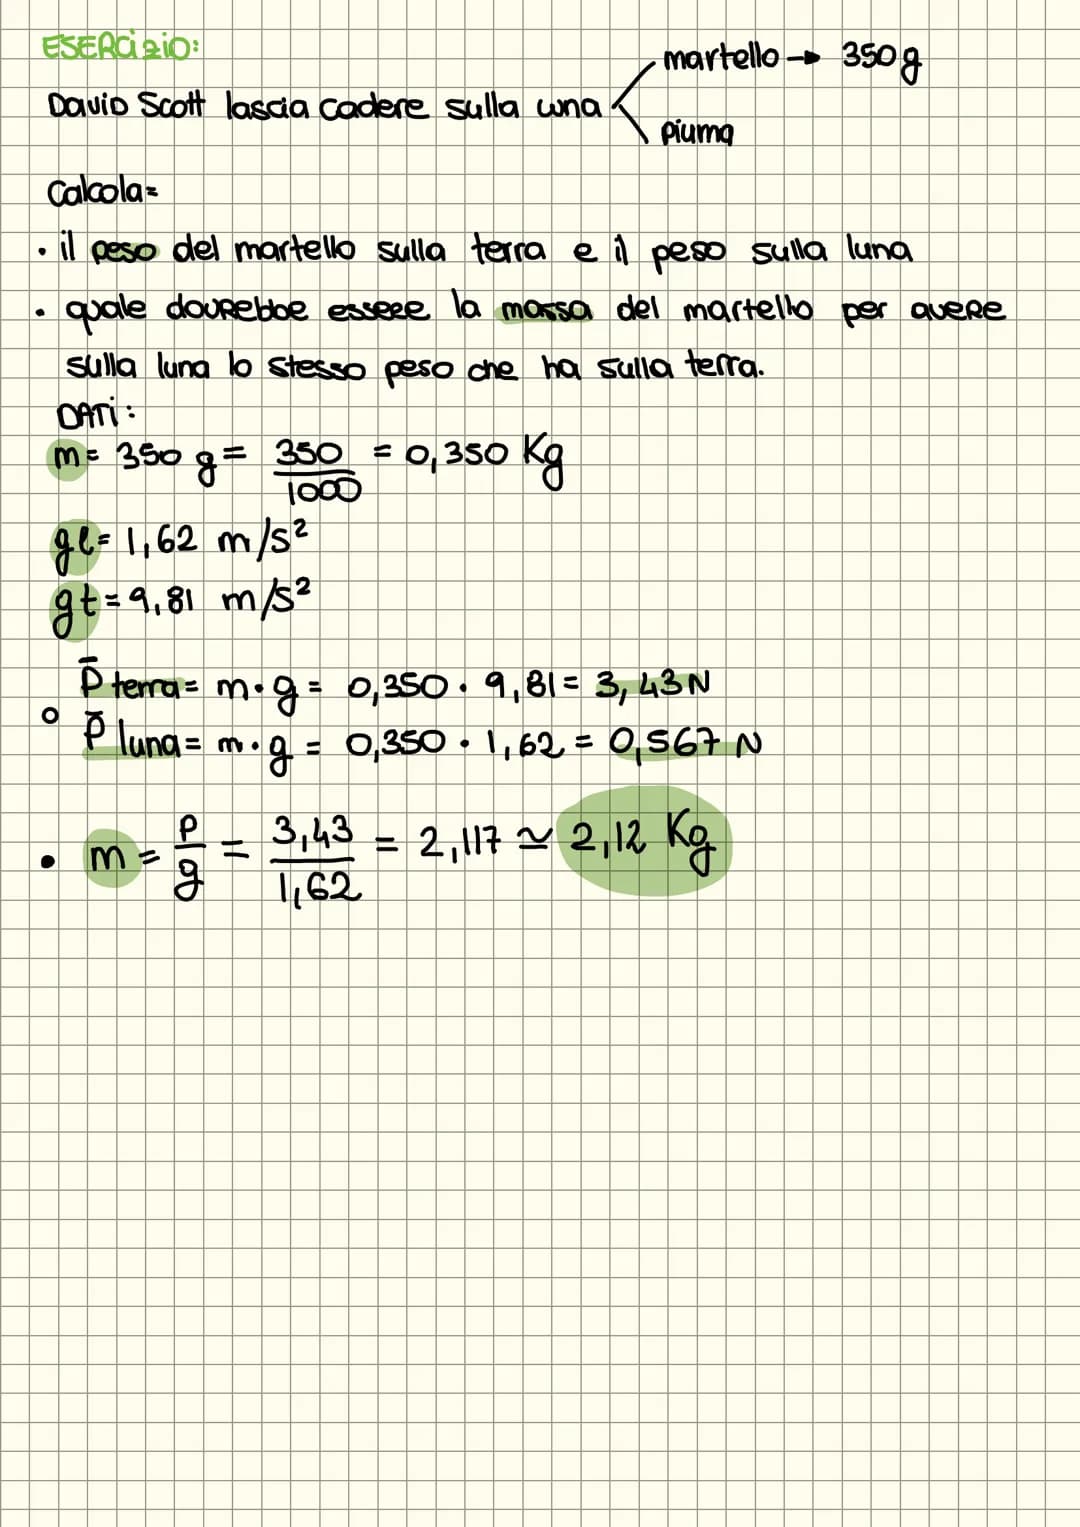 ESERCizio:
martello → 350g
David Scott lascia cadere sulla luna
piuma
Calcola=
• il peso del martello sulla terra e il peso sulla luna
• quale dovrebbe essere la massa del martello per avere
sulla luna lo stesso peso che ha sulla terra.
DATi:
m= 350 g = 350/1000 = 0,350 Kg
gl= 1,62 m/s²
gt= 9,81 m/s²
P̄ terra= m•g = 0,350 • 9,81 = 3,43N
P̄ luna= m•g = 0,350 • 1,62 = 0,567 N
• m = P/g = 3,43/1,62 = 2,117 ≃ 2,12 Kg